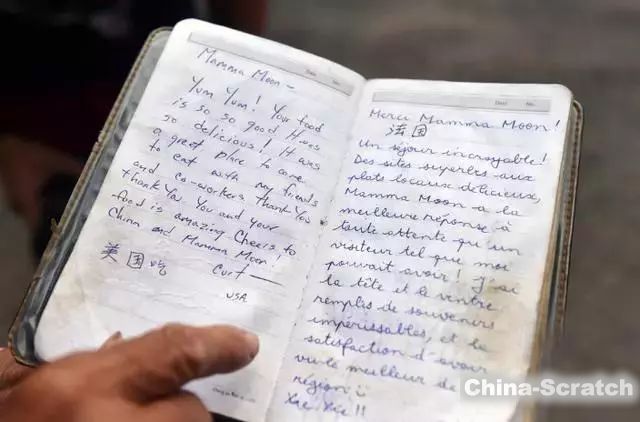 Date No.
Mamma Moon -
Yum Yum! Your food
is so so good It was
so delicious! It was
a great place to come
to eat with my friends
and co-workers Thank You
thank You. You and your
food is amazing Cheers to
China and Mamma Moon!
美国吃 Curt
USA
Date No.
Merci Mamma Moon!
法国
Un séjour incroyable!
Des sites superbes aux
plats locaux délicieux,
Mamma Moon a la
meilleure réponse à
toute attente qu'un
visiteur tel que moi
pouvait avoir! J'ai
la tête et le ventre
remplis de souvenirs
impérissables, et la
satisfaction d'avoir
vu le meilleur de la
région
Xie Xie!!
China-Scratch